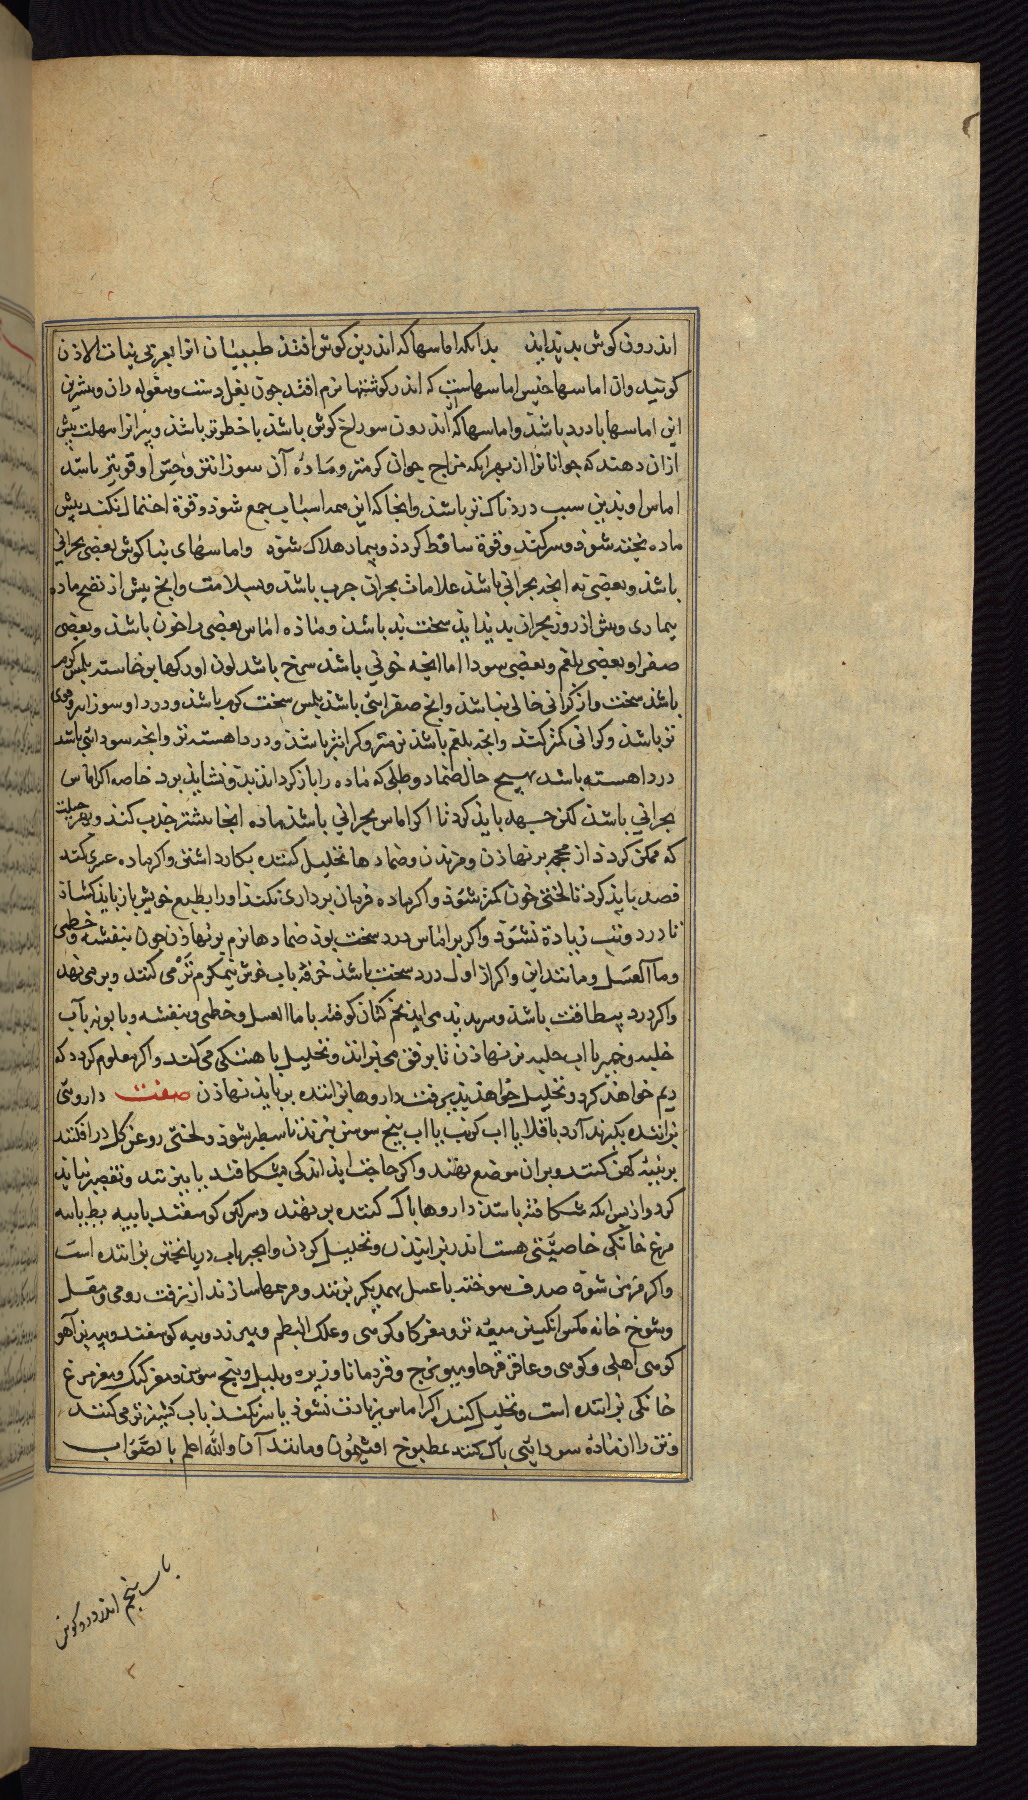 اندرون کوش بدید اید بدانکه اماسها که اندر بن کوش افتد طبیبان انرا بعربی بنات الاذن
کویند وان اماسها جنس اماسهاست که اندر کوشتهاء نرم افتد جون بغل دست و بیغوله ران و بیشترین
این اماسها با درد باشد و اماسها که اندرون سوراخ کوش باشد با خطرتر باشد و پیرانرا مهلت بیش
ازان دهند که جوانانرا از بهر انکه مزاج جوان کرمتر و ماده آن سوزانتر و حس او قویتر باشد
اماس او بدین سبب دردناک تر باشد و انجا که این همه اسباب جمع شوذ و قوة احتمال نکند بیش
ماده بخته شوذ و سر کند و قوة ساقط کردذ و بیمار هلاک شوذ و اماسهای بنا کوش بعضی بحرانی
باشد و بعضی نه انجه بحرانی باشد علامات بحران جرب باشد و بسلامت و انج بیش از نضج ماده
بیماری و بیش از روز بحران بدید اید سخت بد باشد و ماده اماس بعضی را خون باشد و بعضی
صفرا و بعضی بلغم و بعضی سودا اما انجه خونی باشد سرخ باشد لون او و رکها برخاسته بلمس کرم
باشد سخت و از کرانی خالی نباشد و انج صفرایی باشد بلمس سخت کرم باشد و درد او سوزانتر و قوی
تر باشد و کرانی کمتر کند و انجه بلغم باشد نرمتر و کرانتر باشد و درد اهسته تر و انجه سودایی باشد
درد اهسته باشد بهیج حال ضماد و طلی که ماده را باز کرداند بدو نشاید برد خاصه اکر اماس
بحرانی باشد لکن جهد باید کرد تا اکر اماس بحرانی باشد ماده انجا بیشتر جذب کند و بهر حیلت
که ممکن کردد از محجمه بر نهاذن و مزیدن و ضمادها تحلیل کننده بکار داشتن و اکر ماده عسری کند
فصد باید کرد تا لختی خون کمتر شوذ و اکر ماده فرمان برداری نکند او را بطبع خویش باز باید کشاد
تا درد و تب زیادة نشوذ و اکر بر اماس درد سخت بوذ ضمادها نرم بر نهاذن جون بنفشه و خطمی
و ماء العسل و مانند این و اکر از اول درد سخت باشد خرقه باب خوش نیمکرم تر می کنند و بر می نهند
و اکر درد بسطافت باشد و سر بدید می اید تخم کتان کوفته با ماء العسل و خطمی و بنفشه و بابونه بآب
حلبه و جیر با اب حلبه بر نهاذن تا برفق می بزاند و تحلیل باهستکی می کند و اکر معلوم کردد که
ریم خواهذ کرد و تحلیل خواهذ پذیرفت داروها بزاننده بر باید نهاذن صفت داروئی
بزاننده بکیرند آرد باقلا با اب کرنب یا اب بیخ سوسن بپزند تا سطبر شوذ و لختی روغن کل در افکنند
بر بنبه کهن کنند و بران موضع نهند و اکر حاجت اید اندکی بشکافند یا ببزند و تقصیر نباید
کرد و از بس انکه شکافته باشد داروها باک کننده بر نهند و سرکین کوسفند با بیه بط یا بیه
مرغ خانکی خاصیتی هست اندر بزانیدن و تحلیل کردن و انجیر باب دریا بخته بزاننده است
و اکر مزمن شوذ صدف سوخته با عسل بهم دیکر بزنند و مرهمها سازند از زفت رومی و مقل
و شوخ خانه مکس انکبین میعه تر و مغز کاو کوهی و علک البطم و بیرزد و بیه کوسفند و بیه بز آهو
کوهی اهلی و کوهی و عاقر قرحا و میویزج و قردمانا و زیره و بلبل و بیخ سوسن و مغز کبک و مغز مرغ
خانکی بزاننده است و تحلیل کننده اکر اماس بزیادت نشوذ باز نکنند باب کشنیز تر می کنند
و تن را از ماده سودایی باک کنند بمطبوخ افتیمون و مانند آن والله اعلم بالصواب
باب پنجم اندر درد کوش